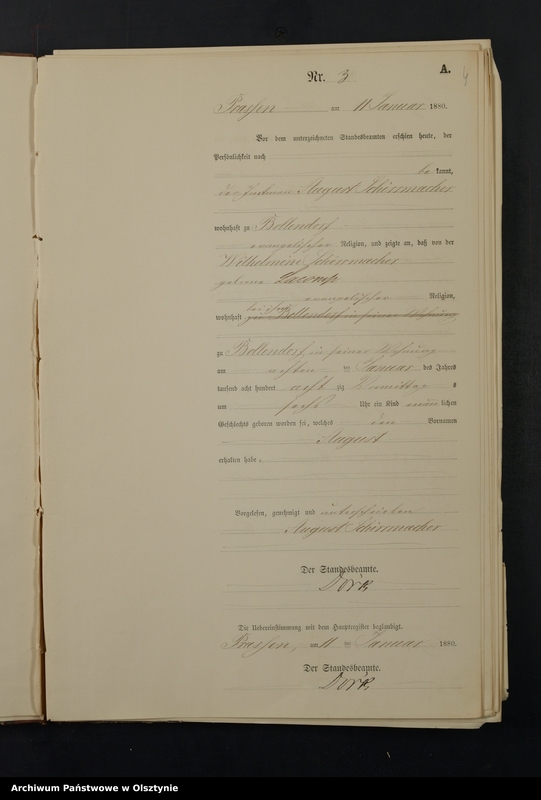 A.
4
Nr. 3
Prassen am 11 Januar 1880.
Vor dem unterzeichneten Standesbeamten erschien heute, der
Persönlichkeit nach
be kannt,
der Instmann August Schirrmacher
wohnhaft zu Bollendorf
evangelischer Religion, und zeigte an, daß von der
Wilhelmine Schirrmacher
geborene
evangelischer Religion,
wohnhaft bei ihm
zu Bollendorf in seiner Wohnung
am achten ten Januar des Jahres
tausend acht hundert acht zig Vormittags
um sechs Uhr ein Kind männlichen
Geschlechts geboren worden sei, welches den Vornamen
August
erhalten habe.
Vorgelesen, genehmigt und unterschrieben
August Schirrmacher
Der Standesbeamte.
Die Uebereinstimmung mit dem Hauptregister beglaubigt.
Prassen, am 11 ten Januar 1880.
Der Standesbeamte.
Archiwum Państwowe w Olsztynie